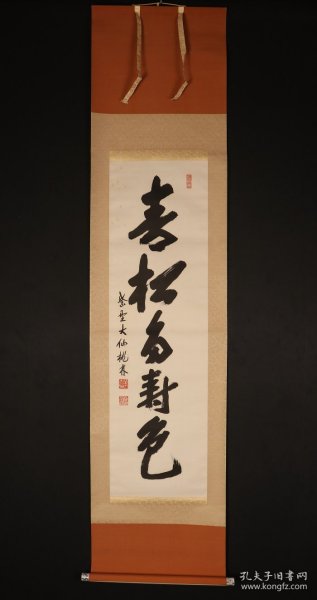 青松多寿色
紫野大仙桃林
孔夫子旧书网
www.kongfz.com